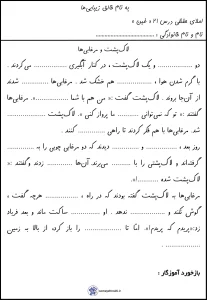 به نام خالق زیبایی‌ها
املای خلاقی درس ۲۱ « غبین »
نام و نام خانوادگی : ..............................
لاک‌پشت و مرغابی‌ها
دو .............. و یک لاک‌پشت ، در کنار آبگیری .............. می‌کردند .
با گرم شدن هوا ، .............. هم خشک شد . مرغابی‌ها .............. شدند
از آن‌جا بروند . لاک‌پشت گفت :« من هم با شما ..............». مرغابی‌ها
گفتند :« تو که نمی‌توانی .............. ما پرواز کنی ». لاک‌پشت ..............
شد . مرغابی‌ها با هم فکر کردند تا راهی .............. کنند .
روز بعد ، .............. و .............. دیدند که دو مرغابی چوبی را به ..............
گرفته‌اند و لاک‌پشتی را با .............. می‌برند. آن‌ها .............. زدند وگفتند :«
لاک‌پشت شده ..............!».
مرغابی‌ها به لاک‌پشت گفته بودند که در راه ، .............. هرچه گفت ،
گوش نکند و .............. ندهد . او .............. ساکت ماند و بعد فریاد
زد:«پریدم که پریدم!». امّا تا .............. را باز کرد، از بالا به زمین
..............
بازخورد آموزگار :